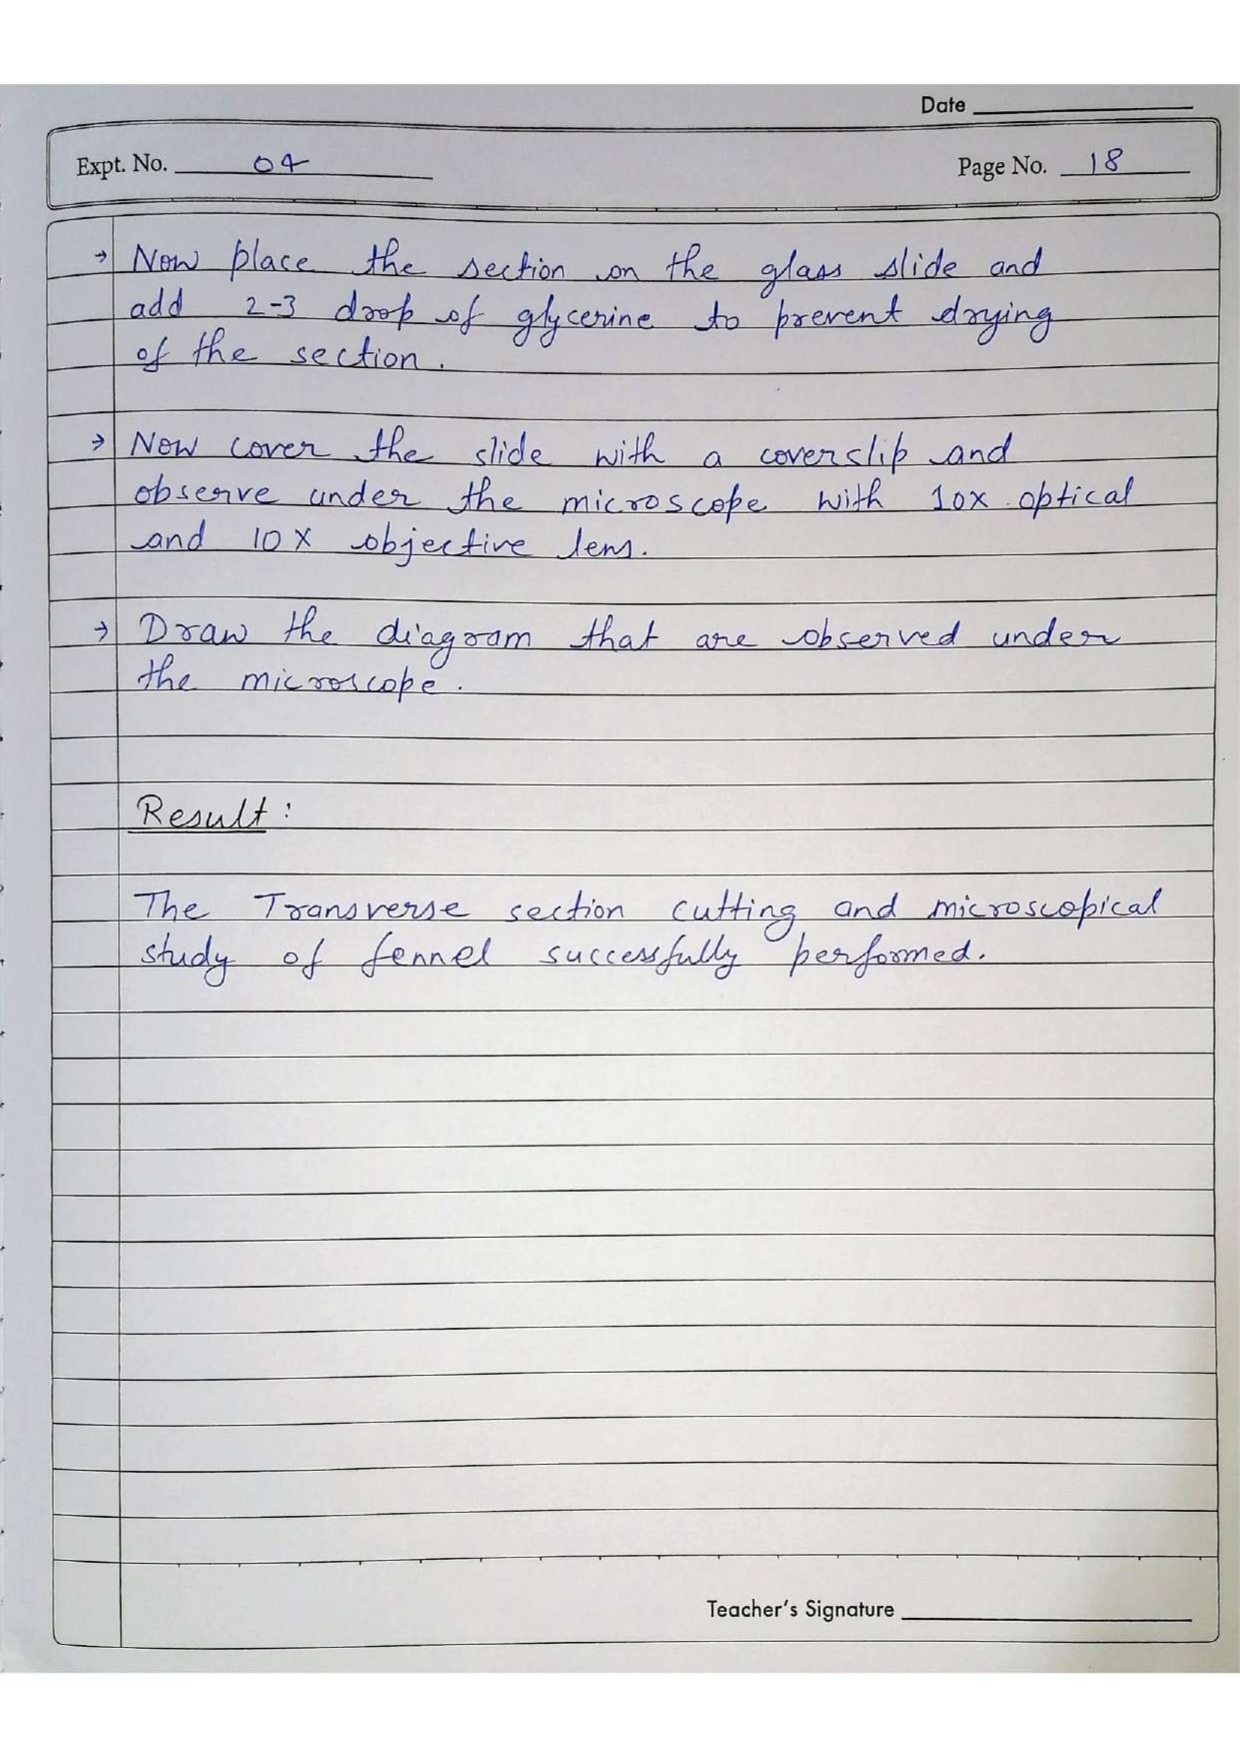 Date
Expt. No. 04
Page No. 18
→ Now place the section on the glass slide and
add 2-3 drop of glycerine to prevent drying
of the section.
→ Now cover the slide with a coverslip and
observe under the microscope with 10x optical
and 10X objective lens.
→ Draw the diagram that are observed under
the microscope.
Result :
The Transverse section cutting and microscopical
study of fennel successfully performed.
Teacher's Signature